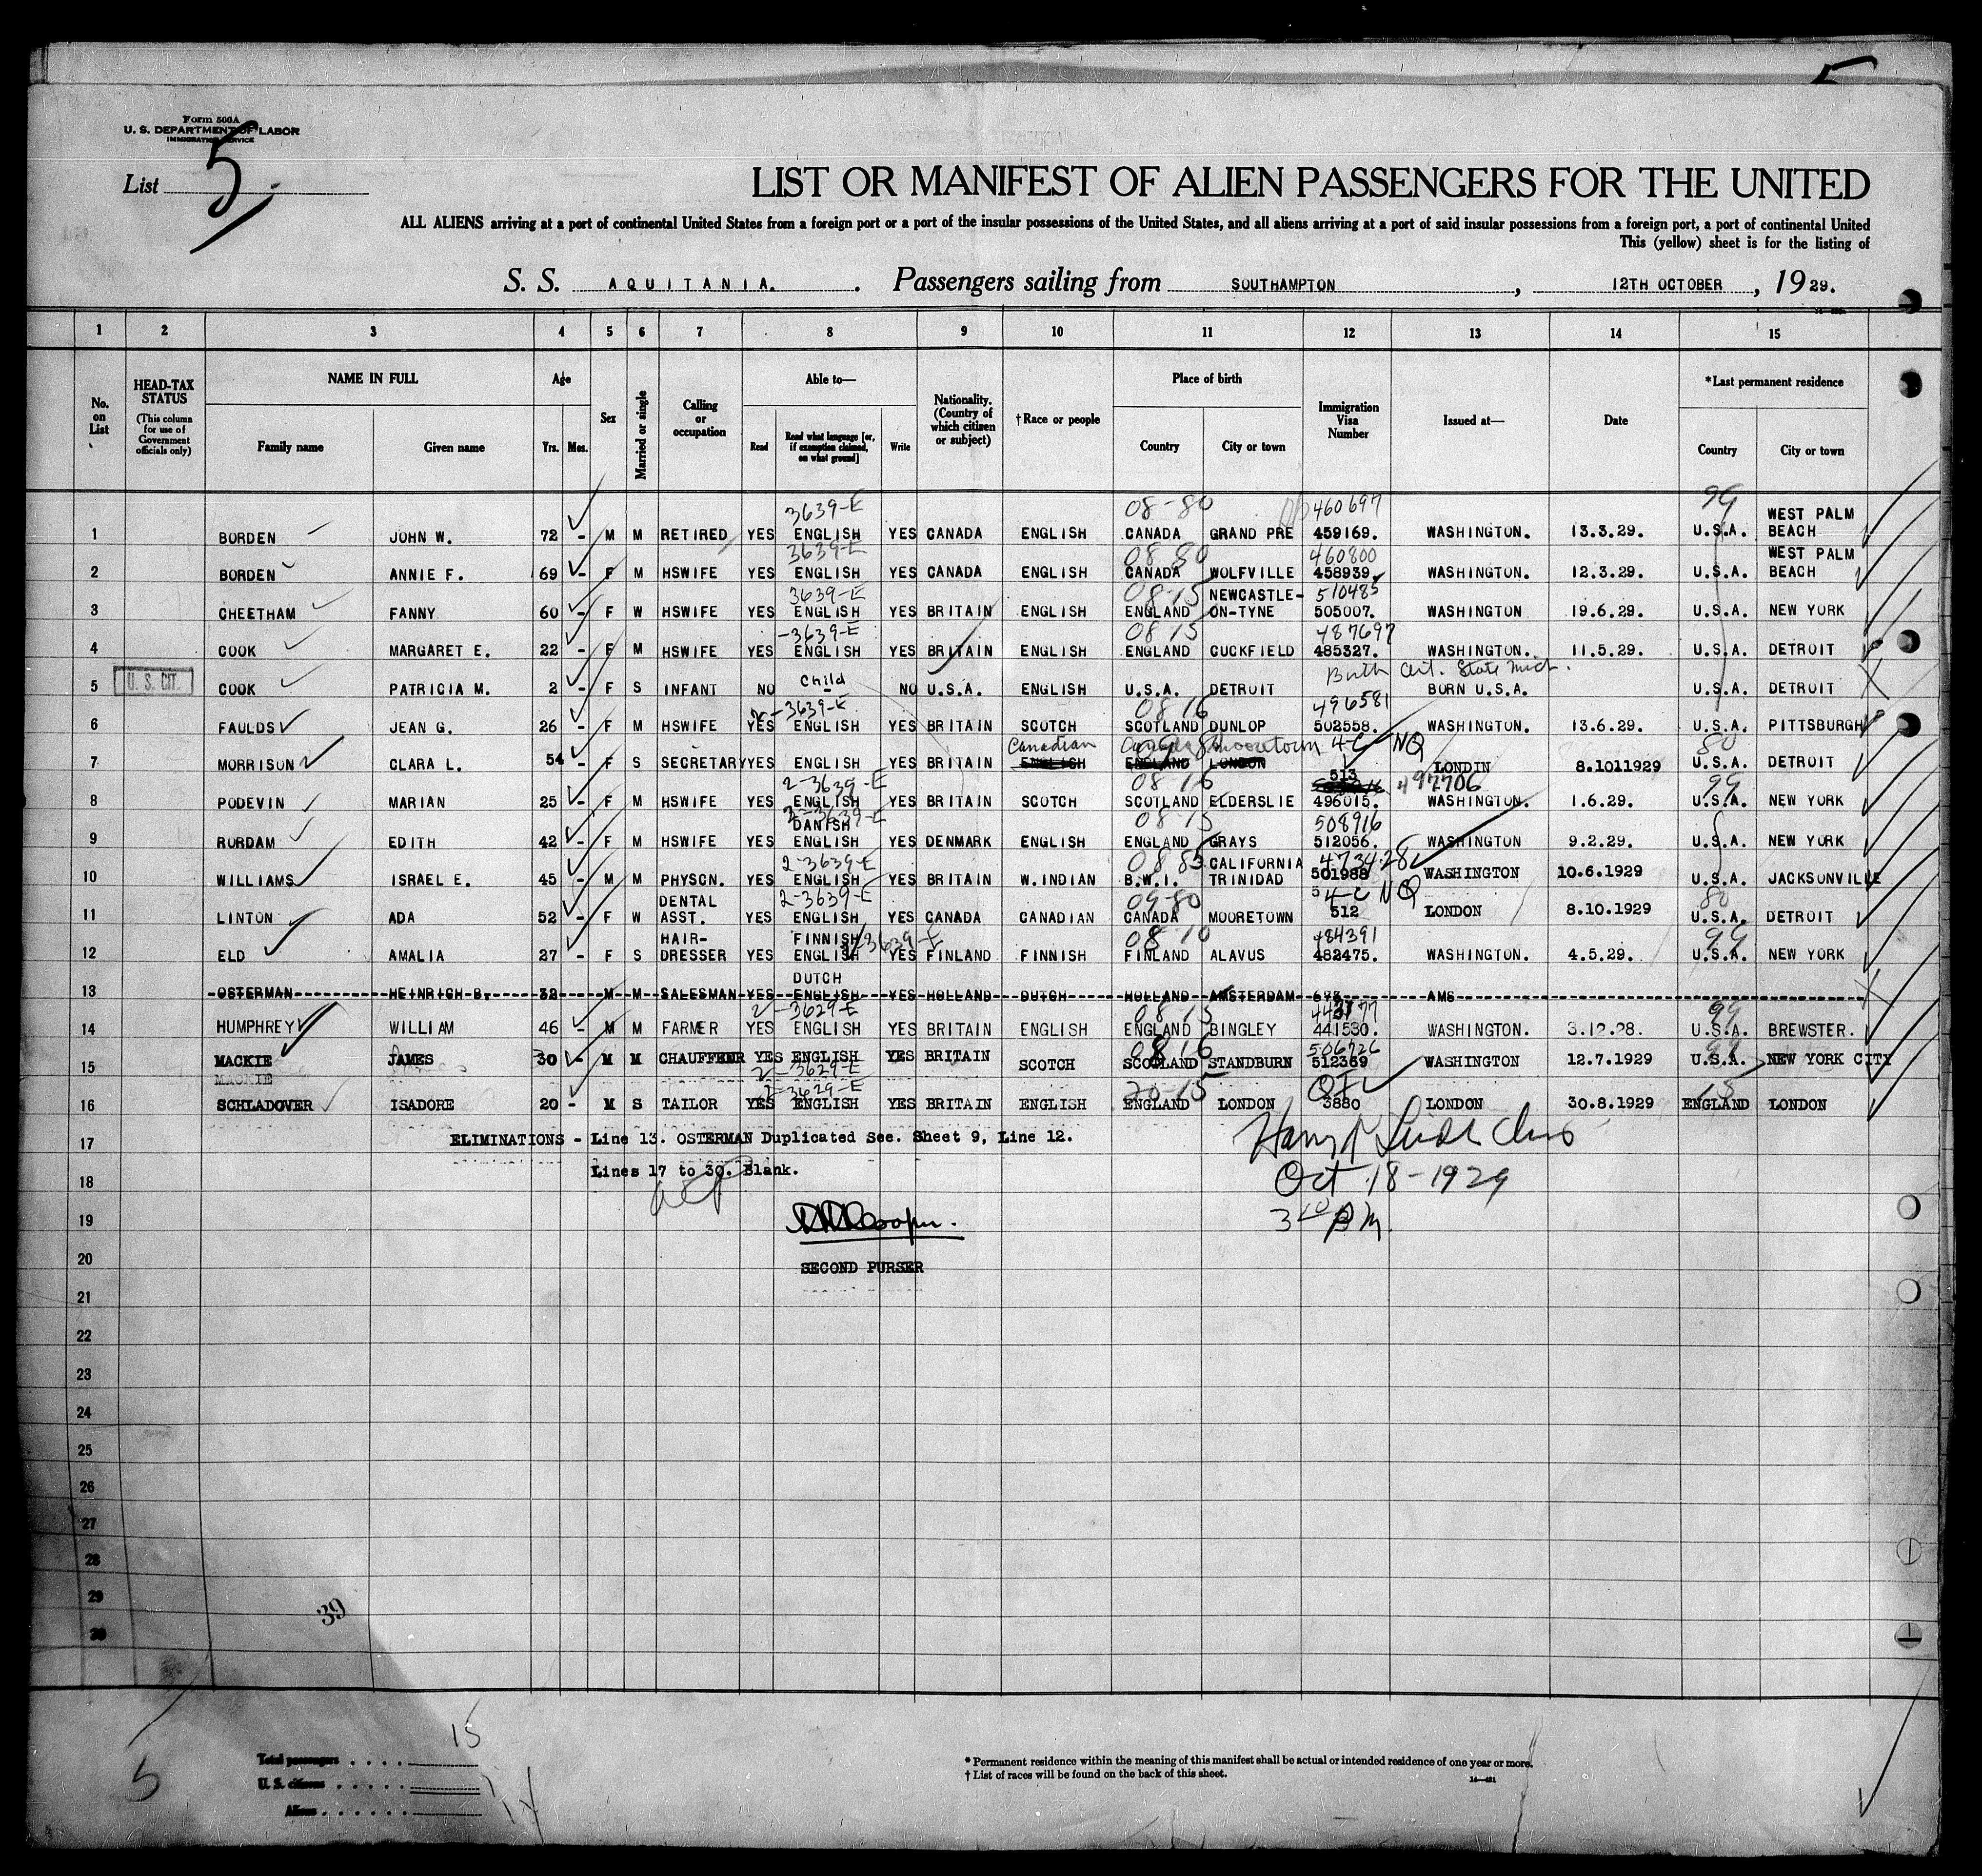 5
Form 500A
U. S. DEPARTMENT OF LABOR
IMMIGRATION SERVICE
List 5
LIST OR MANIFEST OF ALIEN PASSENGERS FOR THE UNITED
ALL ALIENS arriving at a port of continental United States from a foreign port or a port of the insular possessions of the United States, and all aliens arriving at a port of said insular possessions from a foreign port, a port of continental United
This (yellow) sheet is for the listing of
S. S. AQUITANIA. Passengers sailing from SOUTHAMPTON, 12TH OCTOBER, 1929.
1 2 3 4 5 6 7 8 9 10 11 12 13 14 15
No. on List
HEAD-TAX STATUS (This column for use of Government officials only)
NAME IN FULL Family name Given name
Age Yrs. Mos.
Sex
Married or single
Calling or occupation
Able to— Read Read what language [or, if exemption claimed, on what ground] Write
Nationality. (Country of which citizen or subject)
†Race or people
Place of birth Country City or town
Immigration Visa Number
Issued at—
Date
*Last permanent residence Country City or town
3639-E 08-80 460697 99 WEST PALM
1 BORDEN JOHN W. 72 - M M RETIRED YES ENGLISH YES CANADA ENGLISH CANADA GRAND PRE 459169. WASHINGTON. 13.3.29. U.S.A. BEACH
3639-E 08 80 460800 WEST PALM
2 BORDEN ANNIE F. 69 - F M HSWIFE YES ENGLISH YES CANADA ENGLISH CANADA WOLFVILLE 458939. WASHINGTON. 12.3.29. U.S.A. BEACH
3639-E 08-15 NEWCASTLE- 510485
3 CHEETHAM FANNY 60 - F W HSWIFE YES ENGLISH YES BRITAIN ENGLISH ENGLAND ON-TYNE 505007. WASHINGTON 19.6.29. U.S.A. NEW YORK
-3639-E 08 15 487697
4 COOK MARGARET E. 22 - F M HSWIFE YES ENGLISH YES BRITAIN ENGLISH ENGLAND CUCKFIELD 485327. WASHINGTON. 11.5.29. U.S.A. DETROIT
U. S. CIT. Child Birth Cert. State Mich.
5 COOK PATRICIA M. 2 - F S INFANT NO - NO U.S.A. ENGLISH U.S.A. DETROIT BORN U.S.A. U.S.A. DETROIT
2-3639-E 08 16 496581
6 FAULDS JEAN G. 26 - F M HSWIFE YES ENGLISH YES BRITAIN SCOTCH SCOTLAND DUNLOP 502558. WASHINGTON. 13.6.29. U.S.A. PITTSBURGH
Canadian Canada Mooretown 4-C NQ 80
7 MORRISON CLARA L. 54 - F S SECRETARY YES ENGLISH YES BRITAIN ENGLISH ENGLAND LONDON 513 LONDIN 8.1011929 U.S.A. DETROIT
2-3639-E 08 16 497706 99
8 PODEVIN MARIAN 25 - F M HSWIFE YES ENGLISH YES BRITAIN SCOTCH SCOTLAND ELDERSLIE 496015. WASHINGTON. 1.6.29. U.S.A. NEW YORK
2-3639-E DANISH 08-15 508916
9 RORDAM EDITH 42 - F M HSWIFE YES ENGLISH YES DENMARK ENGLISH ENGLAND GRAYS 512056. WASHINGTON 9.2.29. U.S.A. NEW YORK
2-3639-E 08 83 CALIFORNIA 473428
10 WILLIAMS ISRAEL E. 45 - M M PHYSCN. YES ENGLISH YES BRITAIN W.INDIAN B.W.I. TRINIDAD 501988 WASHINGTON 10.6.1929 U.S.A. JACKSONVILLE
DENTAL 2-3639-E 09-80 4-C NQ 80
11 LINTON ADA 52 - F W ASST. YES ENGLISH YES CANADA CANADIAN CANADA MOORETOWN 512 LONDON 8.10.1929 U.S.A. DETROIT
HAIR- FINNISH 3639-E 08 10 484391 99
12 ELD AMALIA 27 - F S DRESSER YES ENGLISH YES FINLAND FINNISH FINLAND ALAVUS 482475. WASHINGTON. 4.5.29. U.S.A. NEW YORK
DUTCH
13 OSTERMAN HEINRICH B. 32 M M SALESMAN YES ENGLISH YES HOLLAND DUTCH HOLLAND AMSTERDAM AMS
2-3629-E 08 15 99
14 HUMPHREY WILLIAM 46 - M M FARMER YES ENGLISH YES BRITAIN ENGLISH ENGLAND BINGLEY 441530. WASHINGTON. 3.12.28. U.S.A. BREWSTER.
08 16 506726 99
15 MACKIE JAMES 30 - M M CHAUFFEUR YES ENGLISH YES BRITAIN SCOTCH SCOTLAND STANDBURN 512369 WASHINGTON 12.7.1929 U.S.A. NEW YORK CITY
MACKIE 2-3629-E
2-3629-E 20-15 15
16 SCHLADOVER ISADORE 20 - M S TAILOR YES ENGLISH YES BRITAIN ENGLISH ENGLAND LONDON 3880 LONDON 30.8.1929 ENGLAND LONDON
17 ELIMINATIONS - Line 13. OSTERMAN Duplicated See. Sheet 9, Line 12.
18 Lines 17 to 30. Blank. Oct 18-1929
19 Cooper. 3 10 PM.
20 SECOND PURSER
21
22
23
24
25
26
27
28
29
30
39
5
Total passengers . . . . 15
U. S. citizens . . . . . 1
Aliens . . . . . . 14
* Permanent residence within the meaning of this manifest shall be actual or intended residence of one year or more.
† List of races will be found on the back of this sheet.